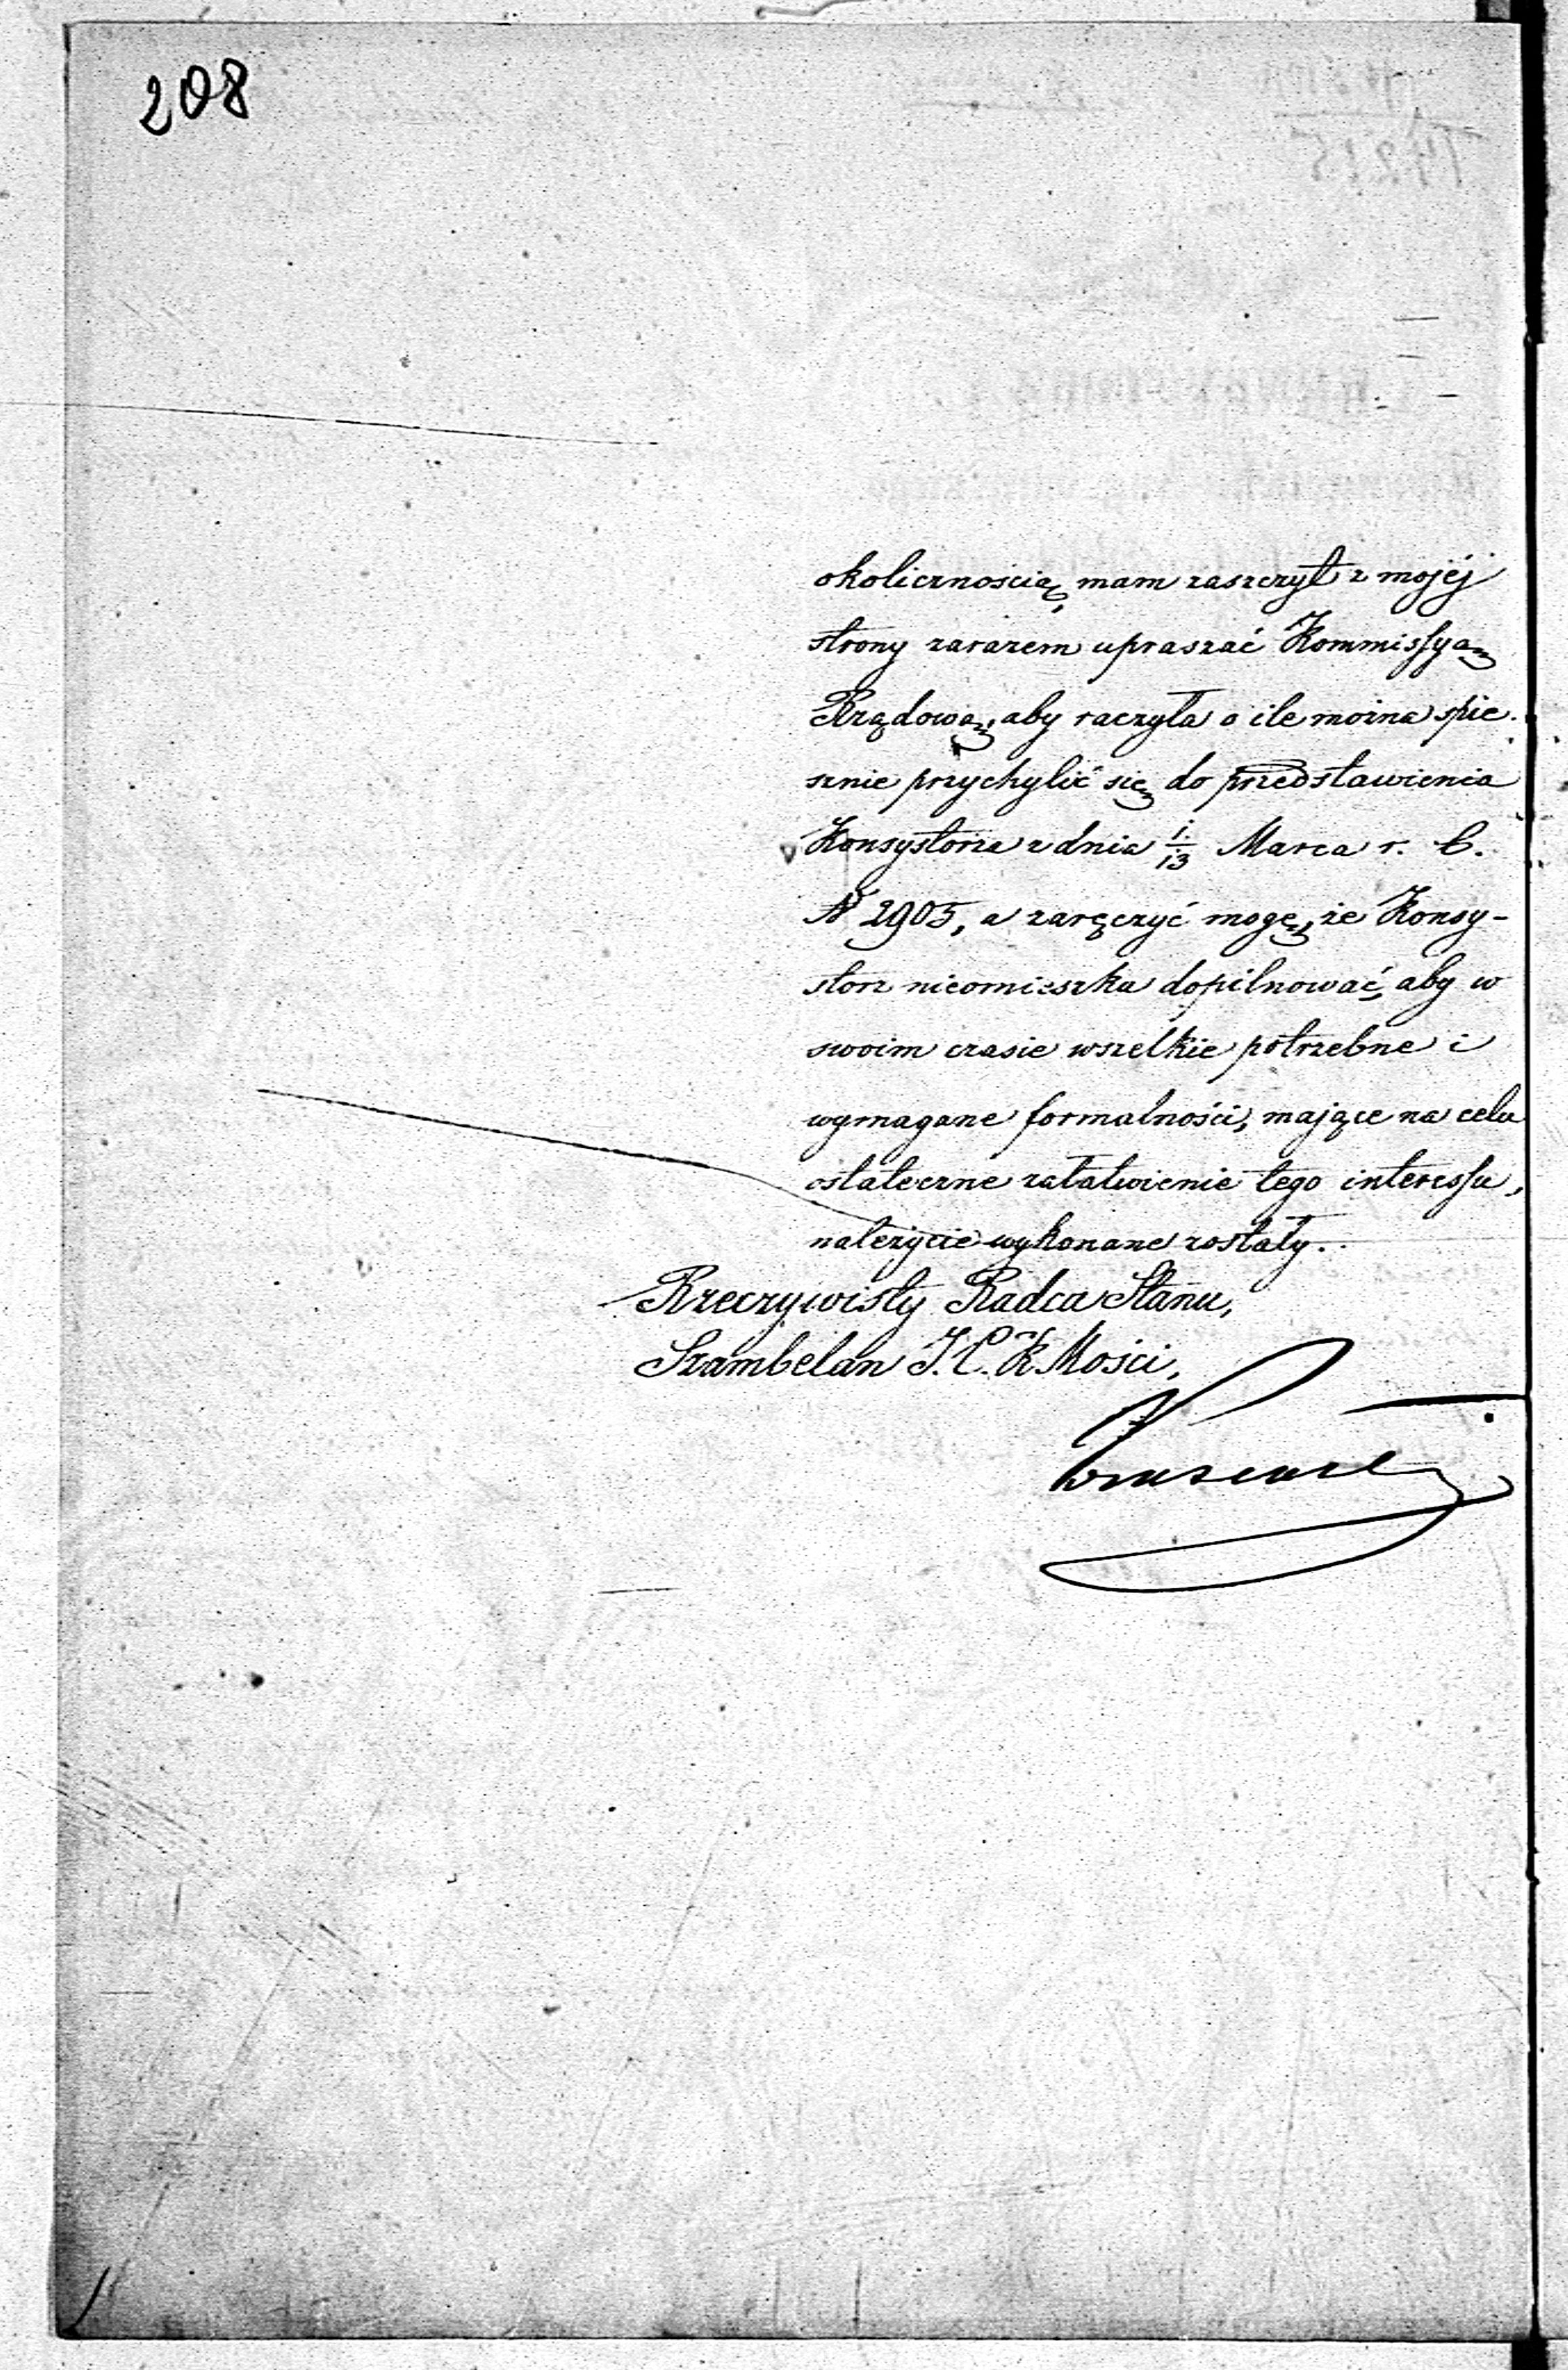 208
okolicznością, mam zaszczyt z mojéj
strony zarazem upraszać Kommissyą
Rządową, aby raczyła o ile można spie-
sznie przychylić się do przedstawienia
Konsystorza z dnia 1/13 Marca r. b.
N 2905, a zaręczyć mogę, że Konsy-
storz nieomieszka dopilnować, aby w
swoim czasie wszelkie potrzebne i
wymagane formalności, mające na celu
ostateczne załatwienie tego interessu,
należycie wykonane zostały.
Rzeczywisty Radca Stanu,
Szambelan J. C. K Mości,